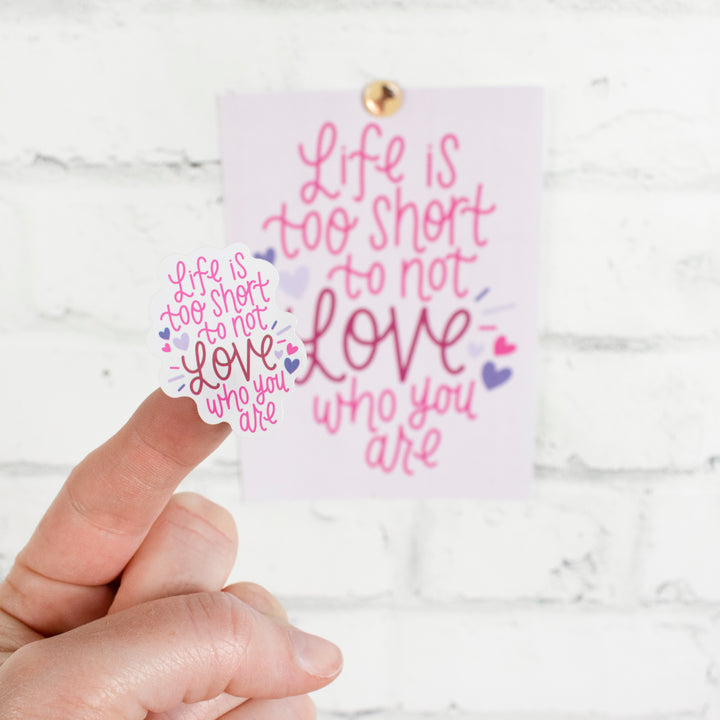 Life is
too short
to not
Love
who you
are
Life is
too short
to not
Love
who you
are